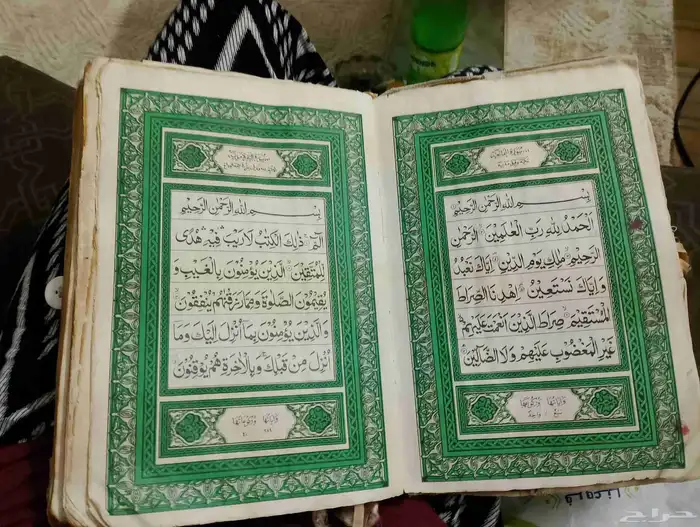 سُورَةُ الفَاتِحَة
بِسْمِ اللهِ الرَّحْمٰنِ الرَّحِيْمِ
اَلْحَمْدُ لِلّٰهِ رَبِّ الْعٰلَمِيْنَ الرَّحْمٰنِ
الرَّحِيْمِ مٰلِكِ يَوْمِ الدِّيْنِ اِيَّاكَ نَعْبُدُ
وَاِيَّاكَ نَسْتَعِيْنُ اِهْدِنَا الصِّرَاطَ
الْمُسْتَقِيْمَ صِرَاطَ الَّذِيْنَ اَنْعَمْتَ عَلَيْهِمْ
غَيْرِ الْمَغْضُوْبِ عَلَيْهِمْ وَلَا الضَّآلِّيْنَ
بِسْمِ اللهِ الرَّحْمٰنِ الرَّحِيْمِ
الٓمّٓ ذٰلِكَ الْكِتٰبُ لَا رَيْبَ فِيْهِ هُدًى
لِّلْمُتَّقِيْنَ الَّذِيْنَ يُؤْمِنُوْنَ بِالْغَيْبِ وَ
يُقِيْمُوْنَ الصَّلٰوةَ وَمِمَّا رَزَقْنٰهُمْ يُنْفِقُوْنَ
وَالَّذِيْنَ يُؤْمِنُوْنَ بِمَآ اُنْزِلَ اِلَيْكَ وَمَآ
اُنْزِلَ مِنْ قَبْلِكَ وَبِالْاٰخِرَةِ هُمْ يُوْقِنُوْنَ
حراج